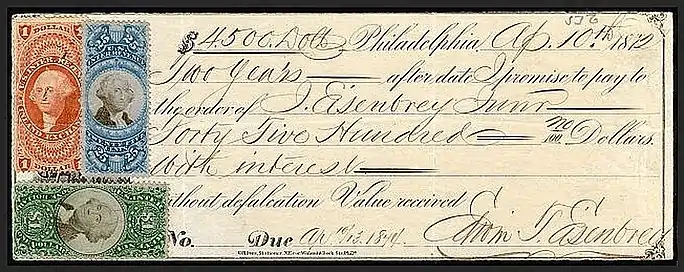 552
$4500. Doll. Philadelphia Ap. 10th 1872
Two Years after date I promise to pay to
the order of J. Eisenbrey Junr
Forty Five Hundred no/100 Dollars.
With interest
without defalcation Value received
No. Due Ap 10/13. 1874 Edwin T. Eisenbrey
1 DOLLAR 1
DOLLAR
25 25